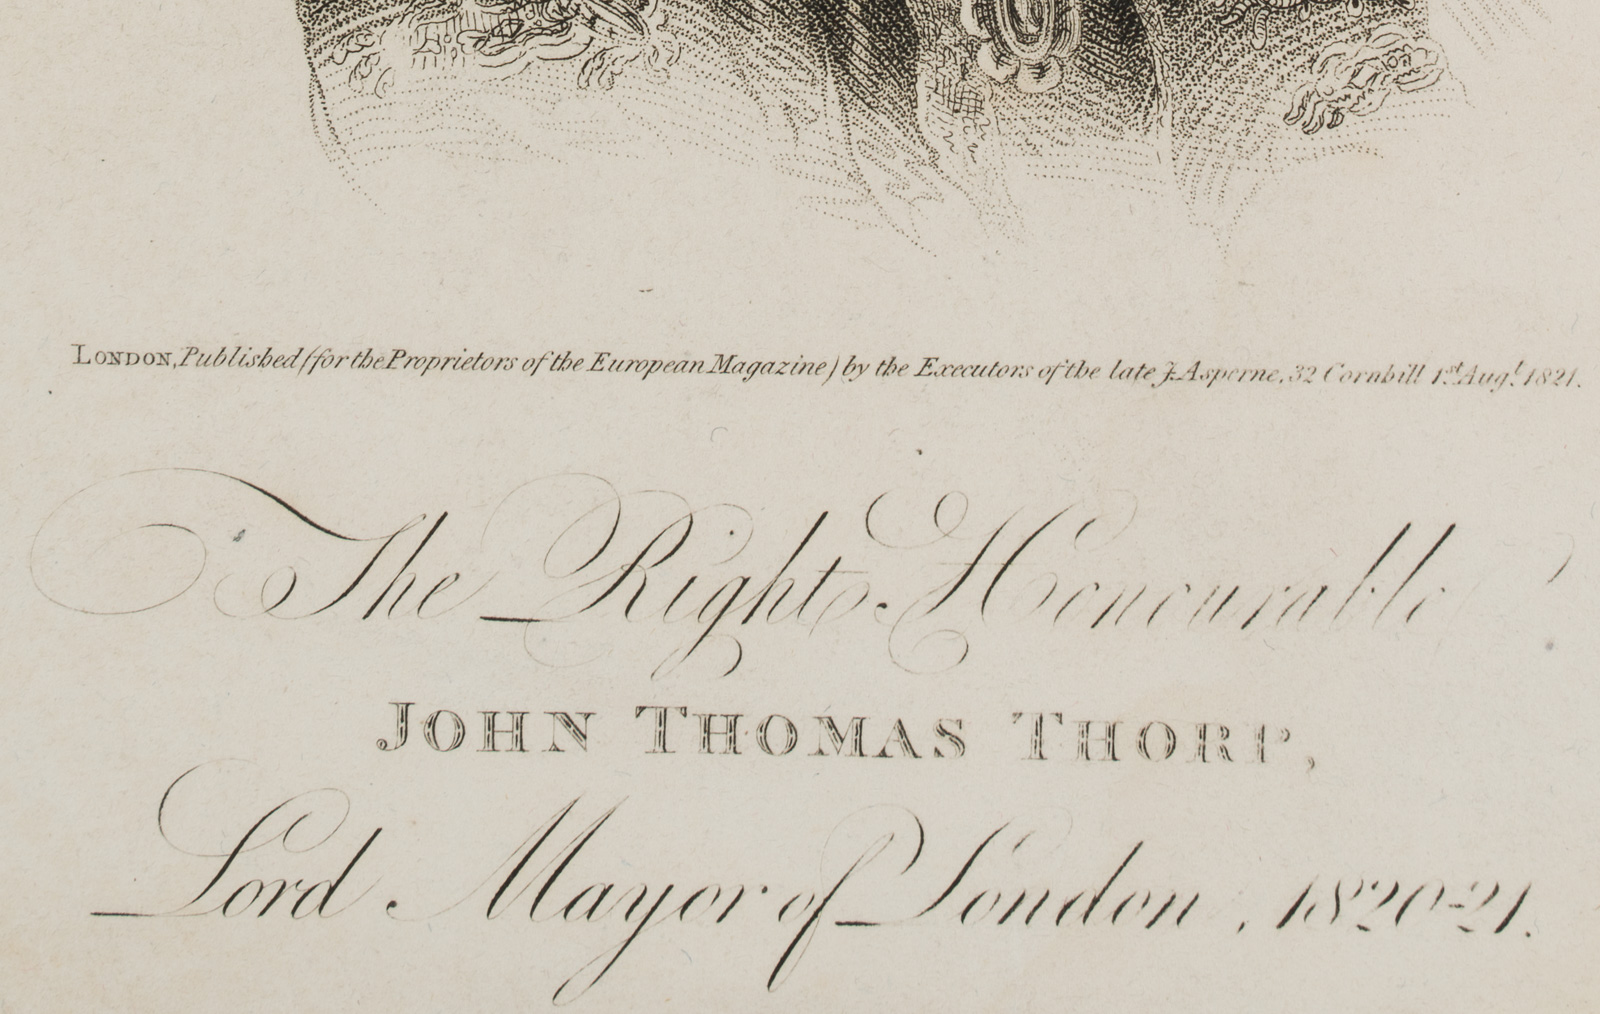 London, Published (for the Proprietors of the European Magazine) by the Executors of the late J. Asperne, 32 Cornhill 1st Augt. 1821.
The Right Honourable
John Thomas Thorp,
Lord Mayor of London, 1820-21.